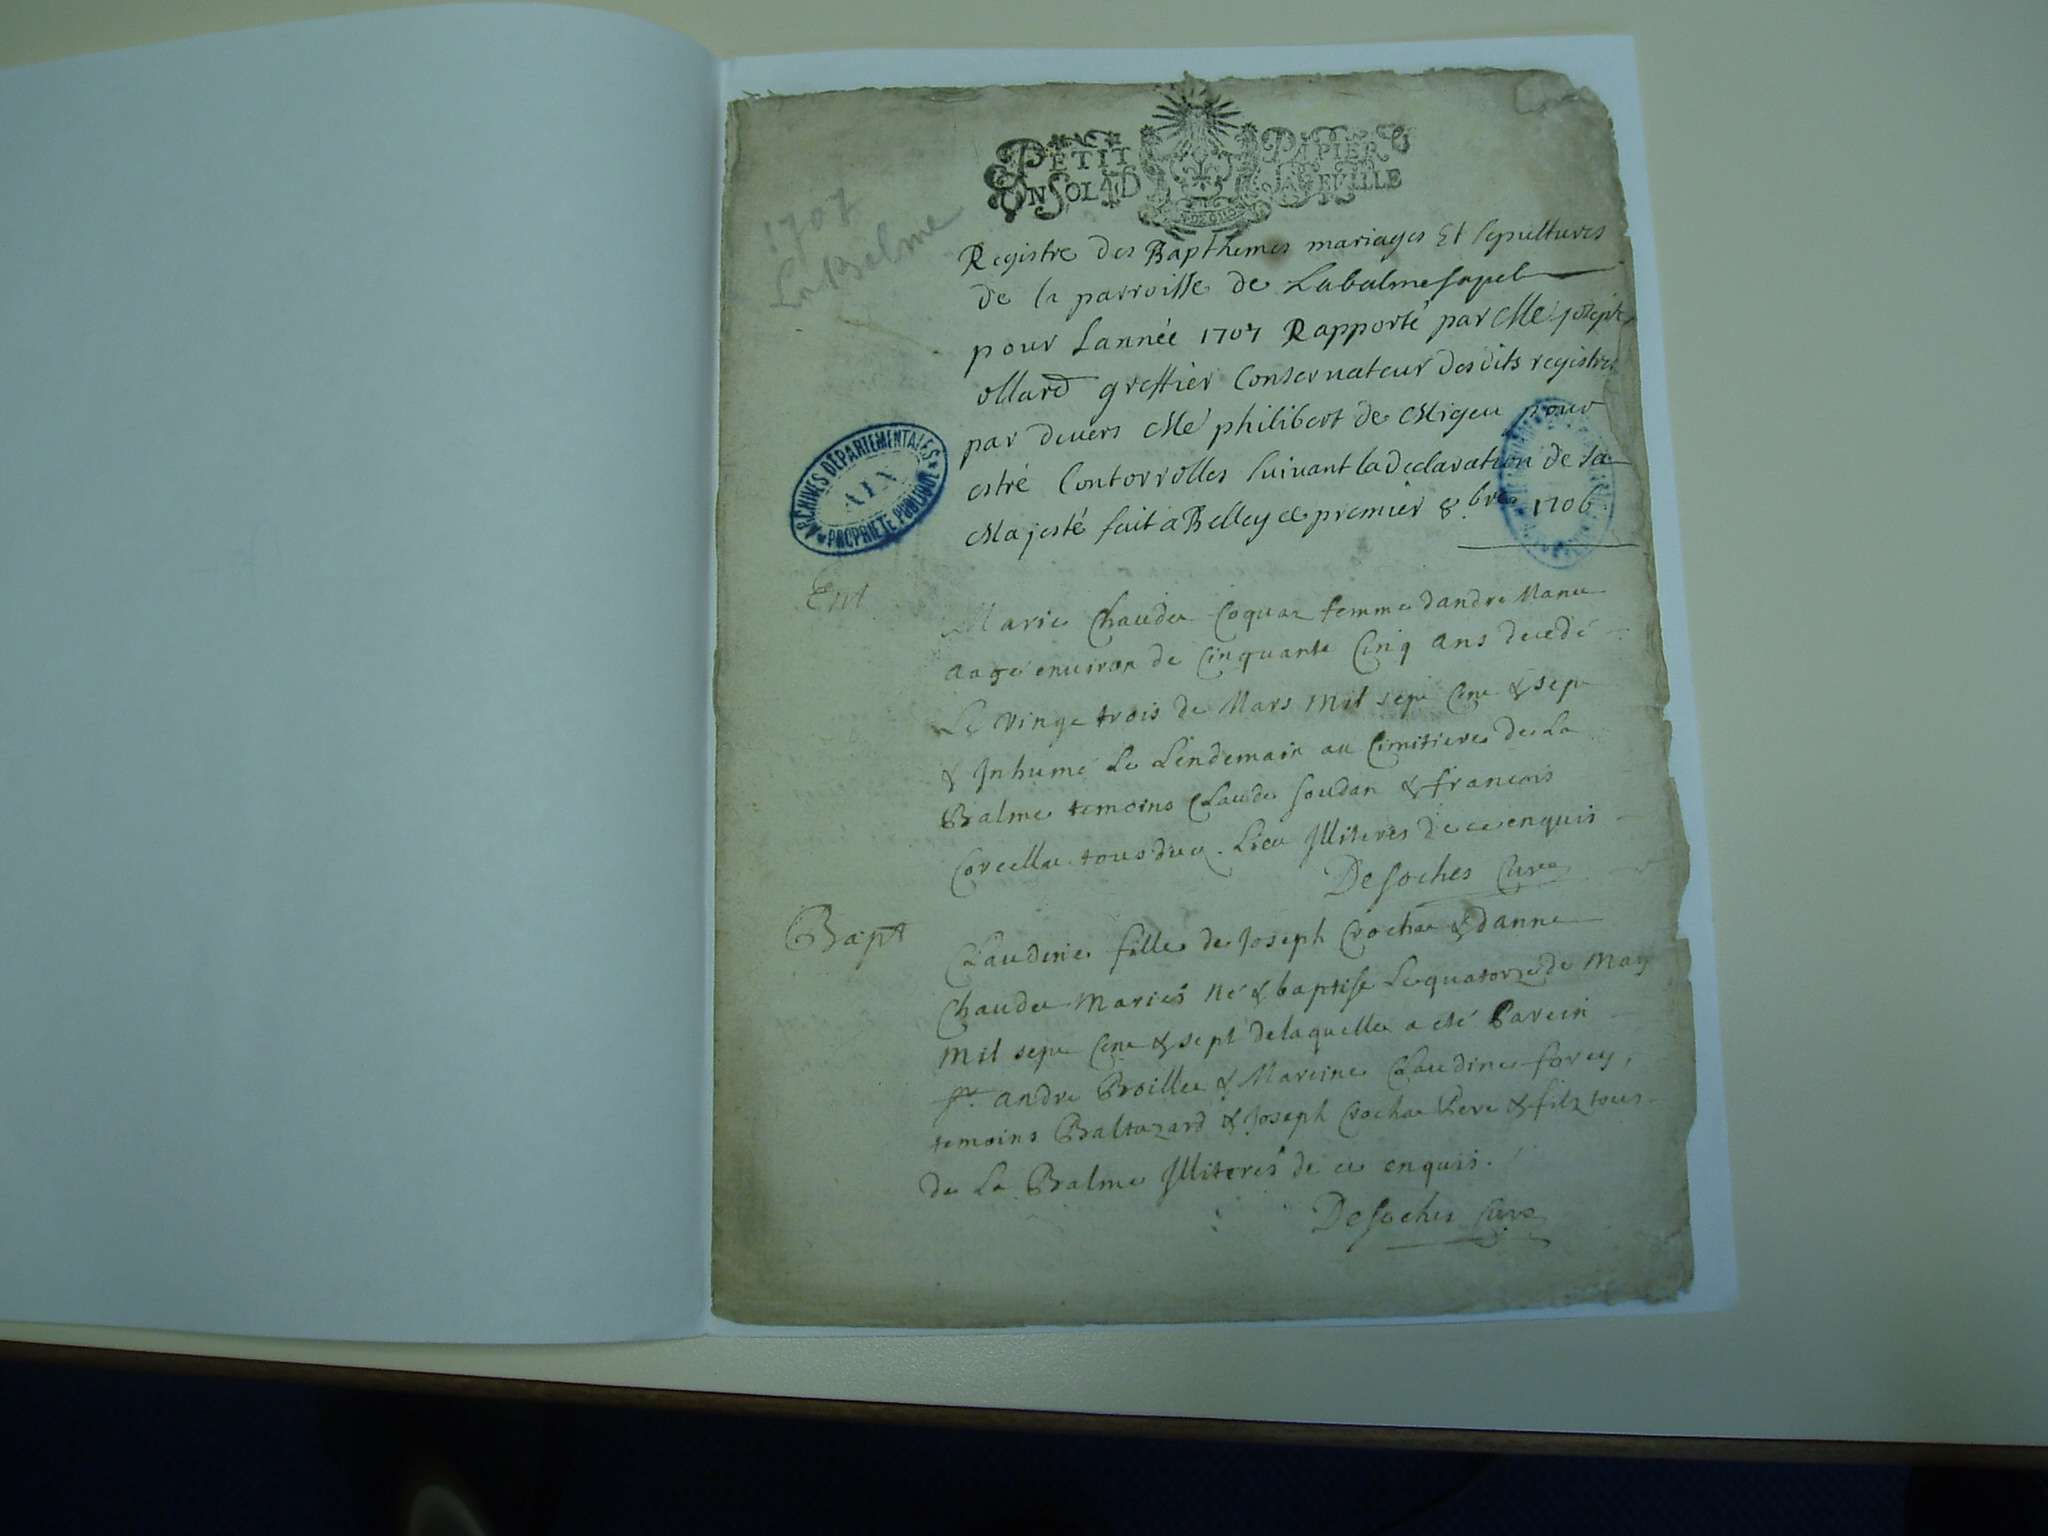 PETIT PAPIER
UN SOL 4D LA FEUILLE
1707
La Balme
Registre des Bapthemes mariages Et sepultures
de la parroisse de Labalme sapel
pour Lannée 1707 Rapporté par Me joseph
ollard greffier Conservateur desdits registres
par devers Me philibert de Migeu pour
estré Contorrolles suivant la declaration de sa
Majesté fait a Belley ce premier 8.bre 1706
ARCHIVES DÉPARTEMENTALES
AIN
PROPRIÉTÉ PUBLIQUE
Ent
Marie Chaudee Coquaz femme dandre Manu
aagé environ de Cinquante Cinq ans decedé
Le vinge trois de Mars mil sept Cent & sept
& Inhumé Le Lendemain au Cimitiere de La
Balme temoins Claude soudan & francois
Corcellu tous du Lieu Illiterés de ce enquis
Desoches Curé
Bapt
Claudine fille de Joseph Crochat & danne
Chaudee Mariés né & baptise Le quatorze de May
Mil sept Cent & sept delaquelle a eté Parein
sr. andre Broillet & Mareine Claudine forey,
temoins Baltazard & Joseph Crochat Pere & filz tous
de La Balme Illiterés de ce enquis.
Desoches Curé